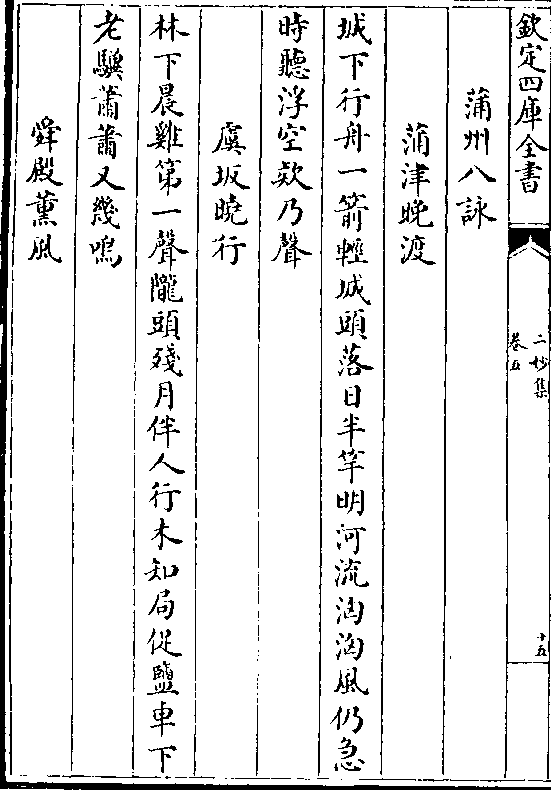 欽定四庫全書
二妙集
卷五
十五
蒲州八詠
蒲津晚渡
城下行舟一箭輕城頭落日半竿明河流洶洶風仍急
時聽浮空欸乃聲
虞坂曉行
林下晨雞第一聲隴頭殘月伴人行木知局促鹽車下
老驥蕭蕭又幾鳴
舜殿薰風